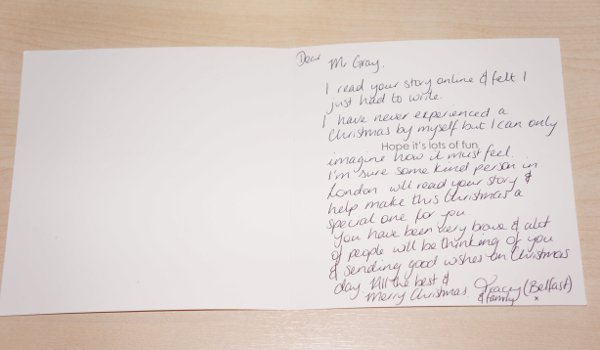 Dear Mr Gray.
I read your story online & felt I
just had to write.
I have never experienced a
Christmas by myself but I can only
Hope it's lots of fun
imagine how it must feel.
I'm sure some kind person in
London will read your story &
help make this Christmas a
special one for you
You have been very brave & alot
of people will be thinking of you
& sending good wishes on Christmas
day All the best &
Merry Christmas Tracey (Belfast)
& family x